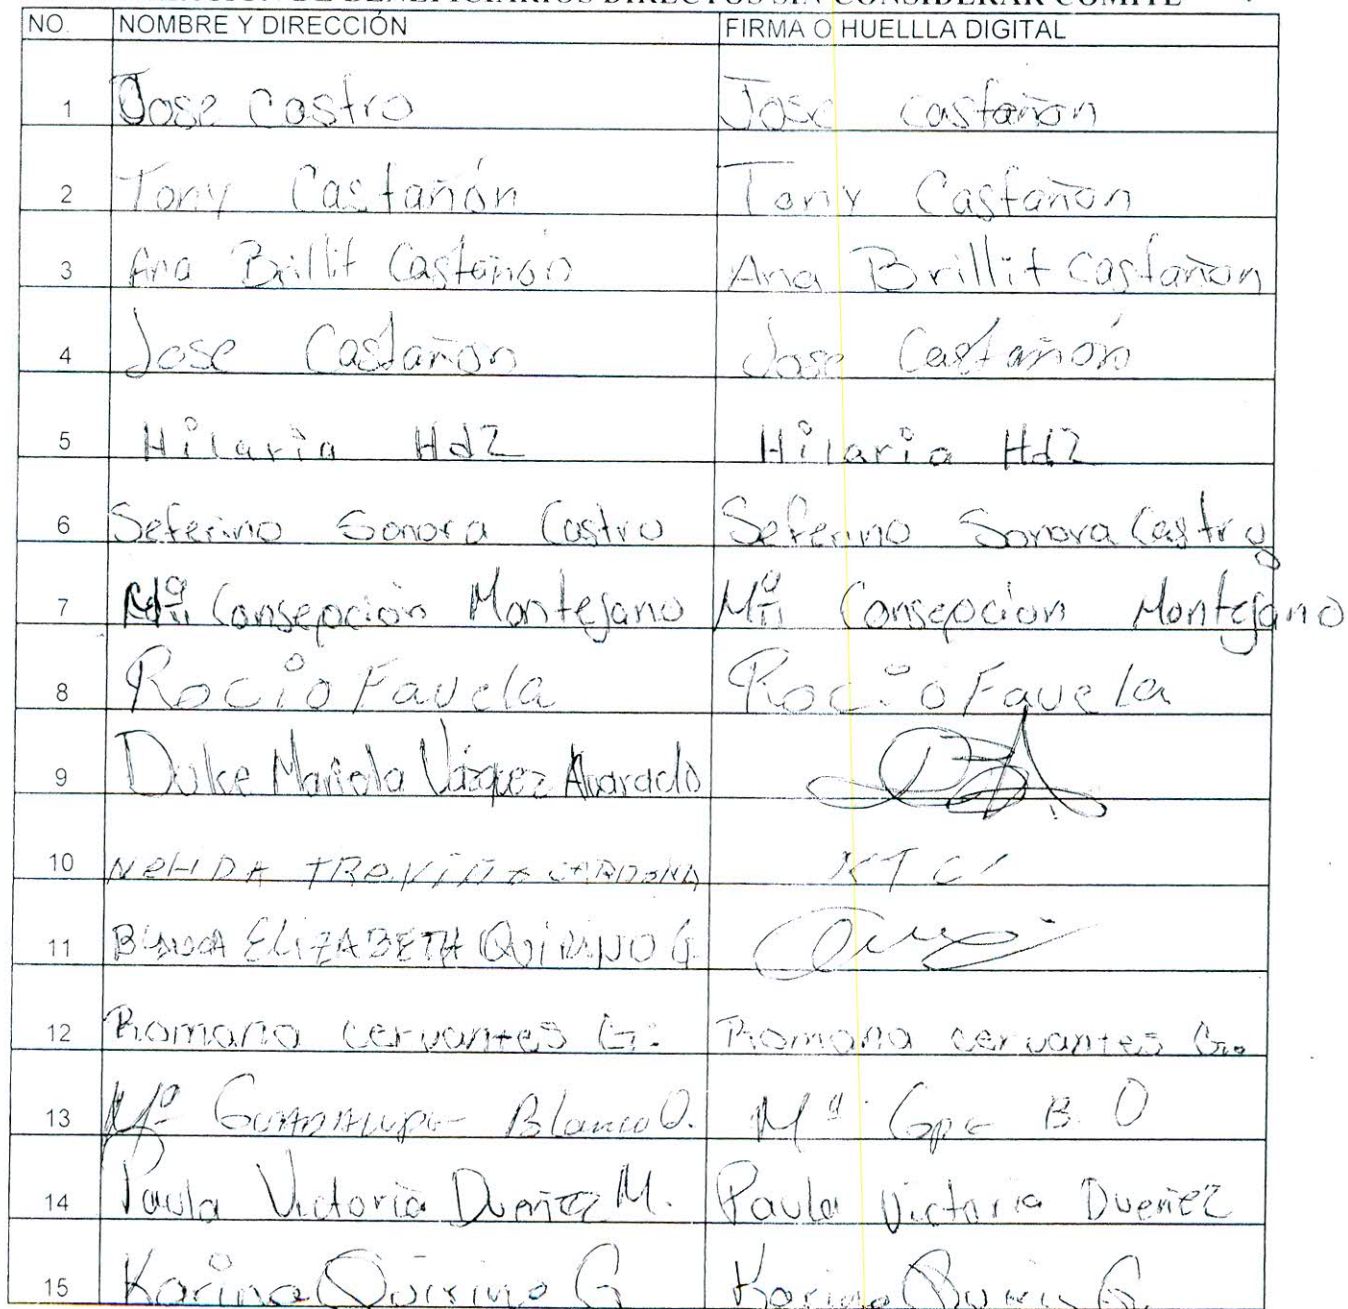 DE BENEFICIARIOS DIRECTOS SIN CONSIDERAR COMITE
NO. NOMBRE Y DIRECCIÓN FIRMA O HUELLLA DIGITAL
1 Jose Castro Jose Castañon
2 Tony Castañón Tony Castañon
3 Ana Brillit Castañon Ana Brillit Castañon
4 Jose Castañon Jose Castañón
5 Hilaria Hdz Hilaria Hdz
6 Seferino Sonora Castro Seferino Sonora Castro
7 Mª Consepción Montejano Mª Consepcion Montejano
8 Rocio Favela Rocio Favela
9 Dulce Mariola Vázquez Alvarado
10 NELIDA TREVIÑO CARDONA
11 BLANCA ELIZABETH QUIRINO G.
12 Romana cervantes G. Romana cervantes G.
13 Mª GUADALUPE Blanco O. Mª Gpe B. O
14 Paula Victoria Dueñez M. Paula Victoria Dueñez
15 Karina Quirino G Karina G.